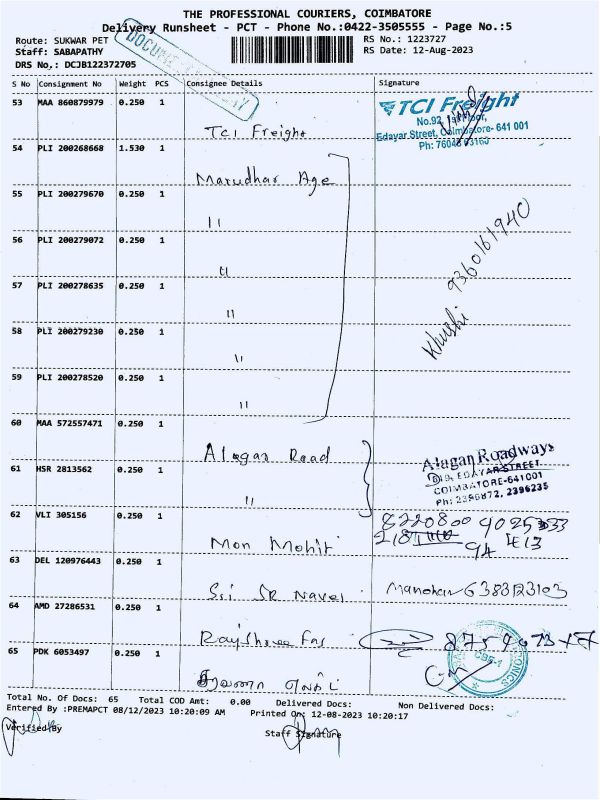 THE PROFESSIONAL COURIERS, COIMBATORE
Delivery Runsheet - PCT - Phone No.:0422-3505555 - Page No.:5
Route: SUKWAR PET
RS No.: 1223727
Staff: SABAPATHY
RS Date: 12-Aug-2023
DRS No.: DCJB122372705
S No Consignment No Weight PCS Consignee Details Signature
53 MAA 860879979 0.250 1
TCI Freight
TCI Freight
No.92, 1st Floor,
Edayar Street, Coimbatore- 641 001
Ph: 76048 63160
54 PLI 200268668 1.530 1
Marudhar Age
55 PLI 200279670 0.250 1
"
56 PLI 200279072 0.250 1
"
57 PLI 200278635 0.250 1
"
58 PLI 200279230 0.250 1
"
59 PLI 200278520 0.250 1
"
Khushi 9360161940
60 MAA 572557471 0.250 1
Alagan Road
61 HSR 2813562 0.250 1
"
Alagan Roadways
EDAYAR STREET
COIMBATORE-641001
Ph: 2396872, 2396235
62 VLI 305156 0.250 1
Mon Mohit
63 DEL 120976443 0.250 1
Sri SR
Manohar 6383123103
64 AMD 27286531 0.250 1
65 PDK 6053497 0.250 1
Total No. Of Docs: 65 Total COD Amt: 0.00 Delivered Docs: Non Delivered Docs:
Entered By :PREMAPCT 08/12/2023 10:20:09 AM Printed On: 12-08-2023 10:20:17
Verified By
Staff Signature